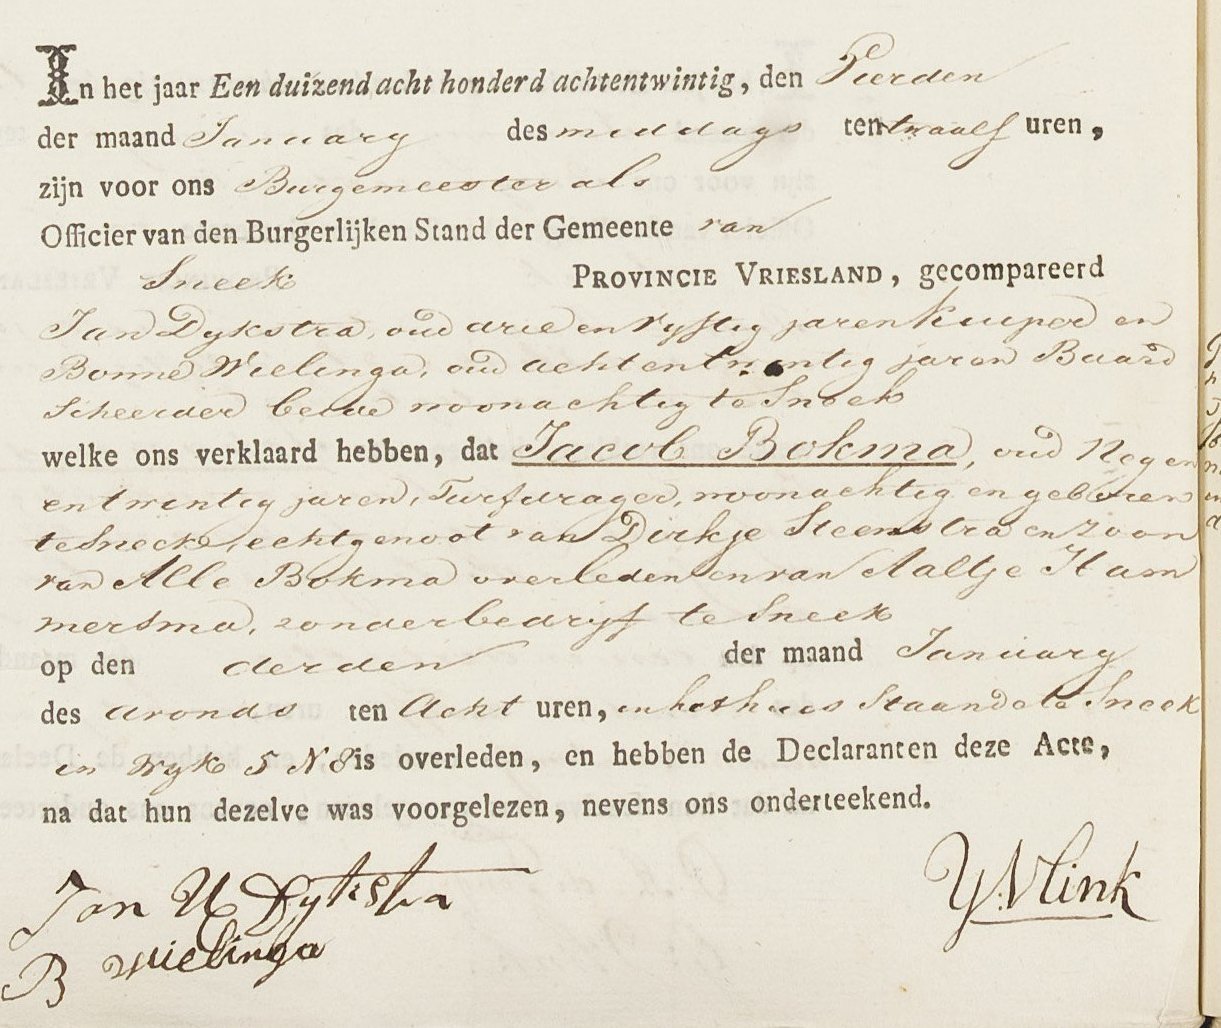 In het jaar Een duizend acht honderd achtentwintig, den Vierden
der maand January des middags ten twaalf uren,
zijn voor ons Burgemeester als
Officier van den Burgerlijken Stand der Gemeente van
Sneek PROVINCIE VRIESLAND, gecompareerd
Jan Dykstra, oud drie en vyftig jaren kuiper en
Bonne Wielinga, oud acht en twintig jaren Baard
Scheerder beide woonachtig te Sneek
welke ons verklaard hebben, dat Jacob Bokma, oud Negen
en twintig jaren, Turfdrager, woonachtig en geboren
te Sneek, echtgenoot van Dirkje Steenstra en zoon
van Alle Bokma overleden en van Aaltje Ham
mersma, zonder bedryf te Sneek
op den derden der maand January
des avonds ten Acht uren, in het huis Staande te Sneek
in Wyk 5 N 8 is overleden, en hebben de Declaranten deze Acte,
na dat hun dezelve was voorgelezen, nevens ons onderteekend.
Jan U Dykstra
B Wielinga